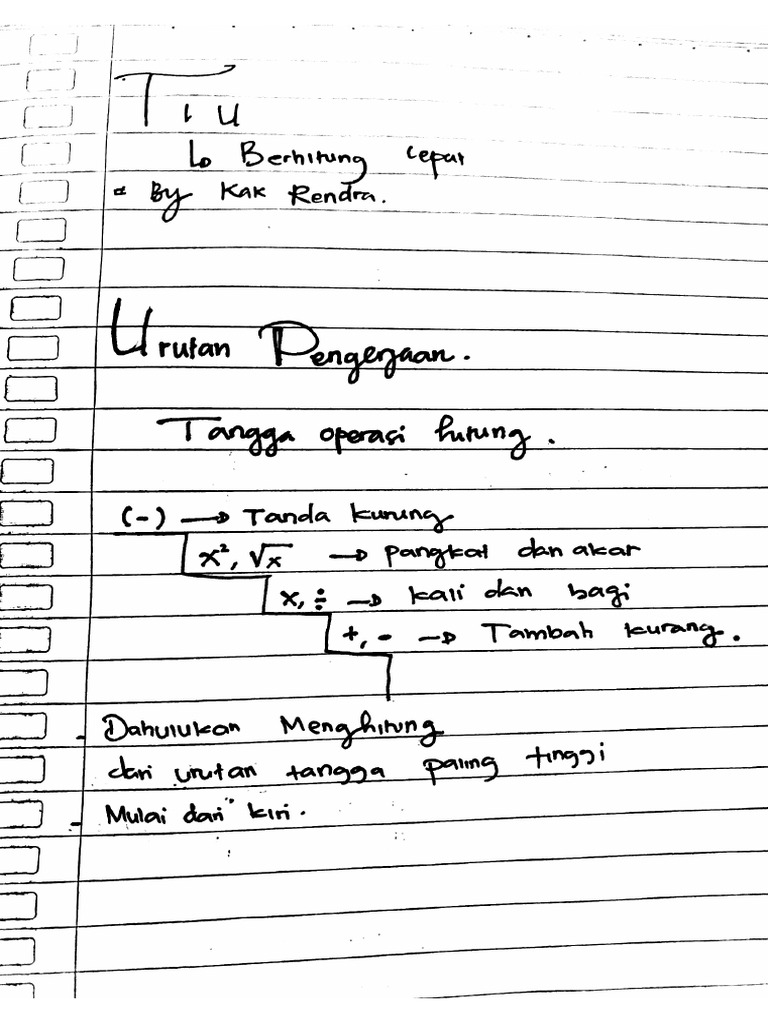 TIU
↳ Berhitung cepat
By Kak Rendra.
Urutan Pengerjaan.
Tangga operasi hitung.
(-) → Tanda kurung
x², √x → pangkat dan akar
x, ÷ → kali dan bagi
+, - → Tambah kurang.
- Dahulukan Menghitung
dari urutan tangga paling tinggi
- Mulai dari kiri.